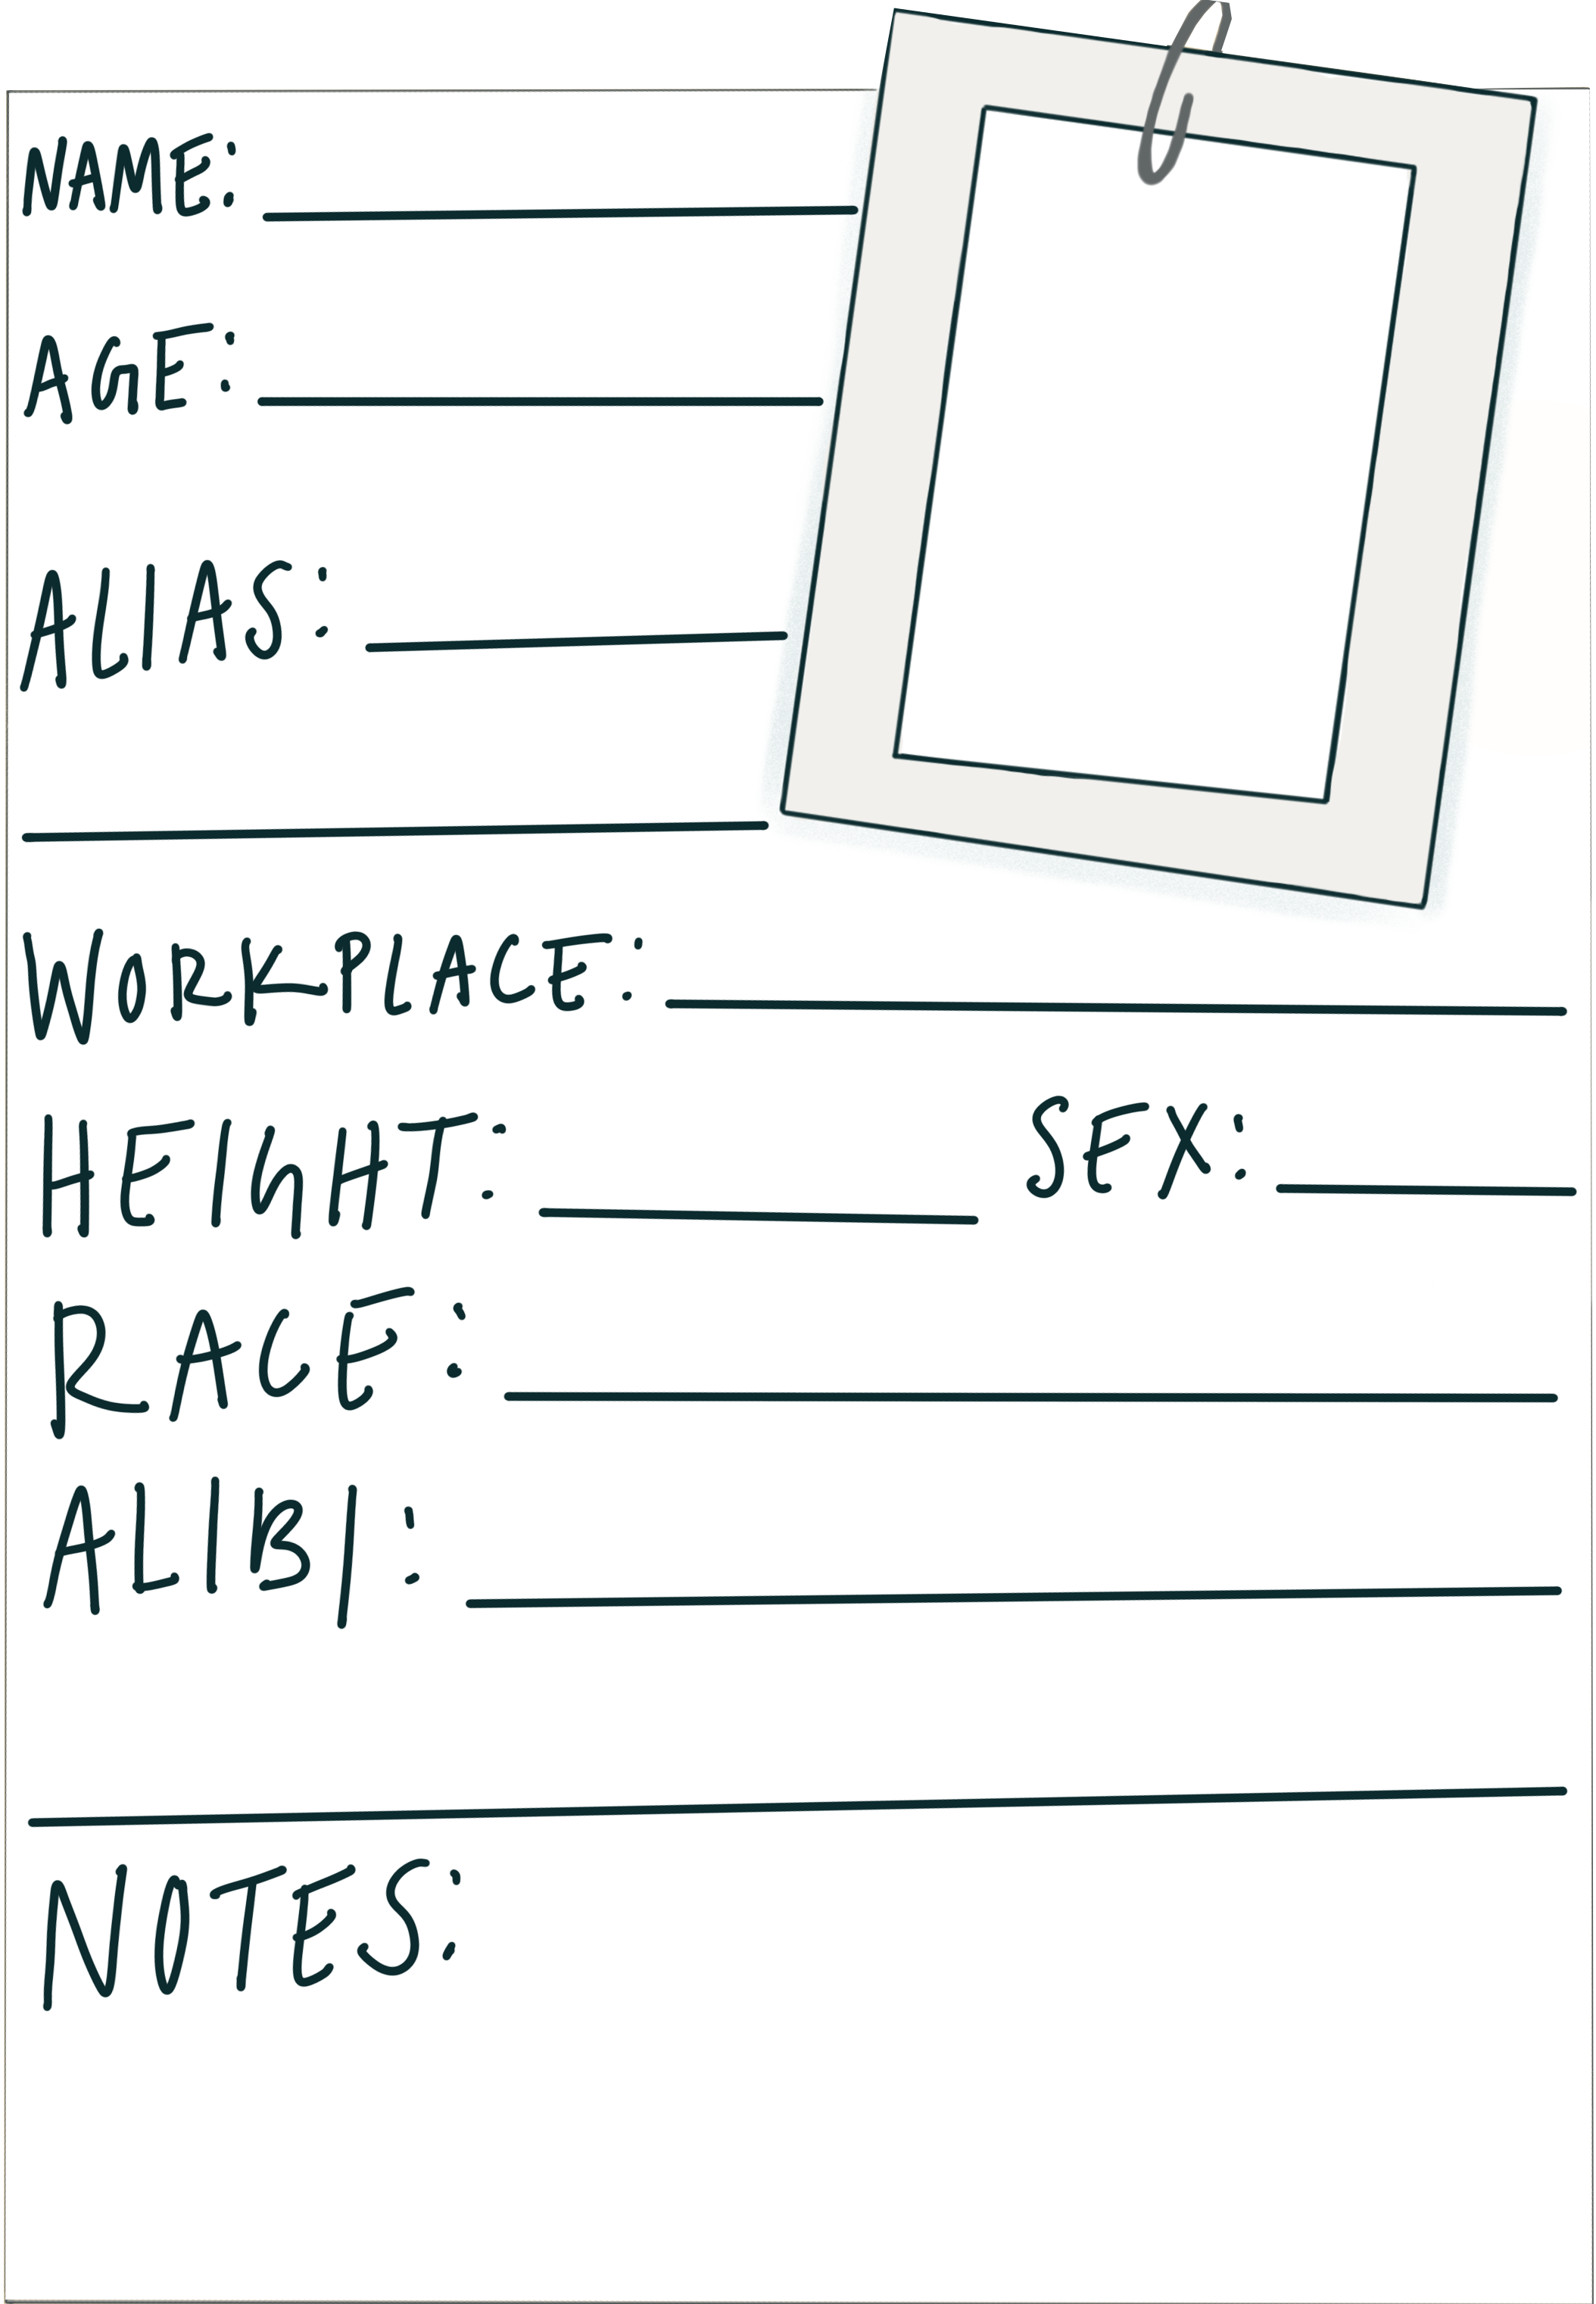 NAME:
AGE:
ALIAS:
WORKPLACE:
HEIGHT: SEX:
RACE:
ALIBI:
NOTES: